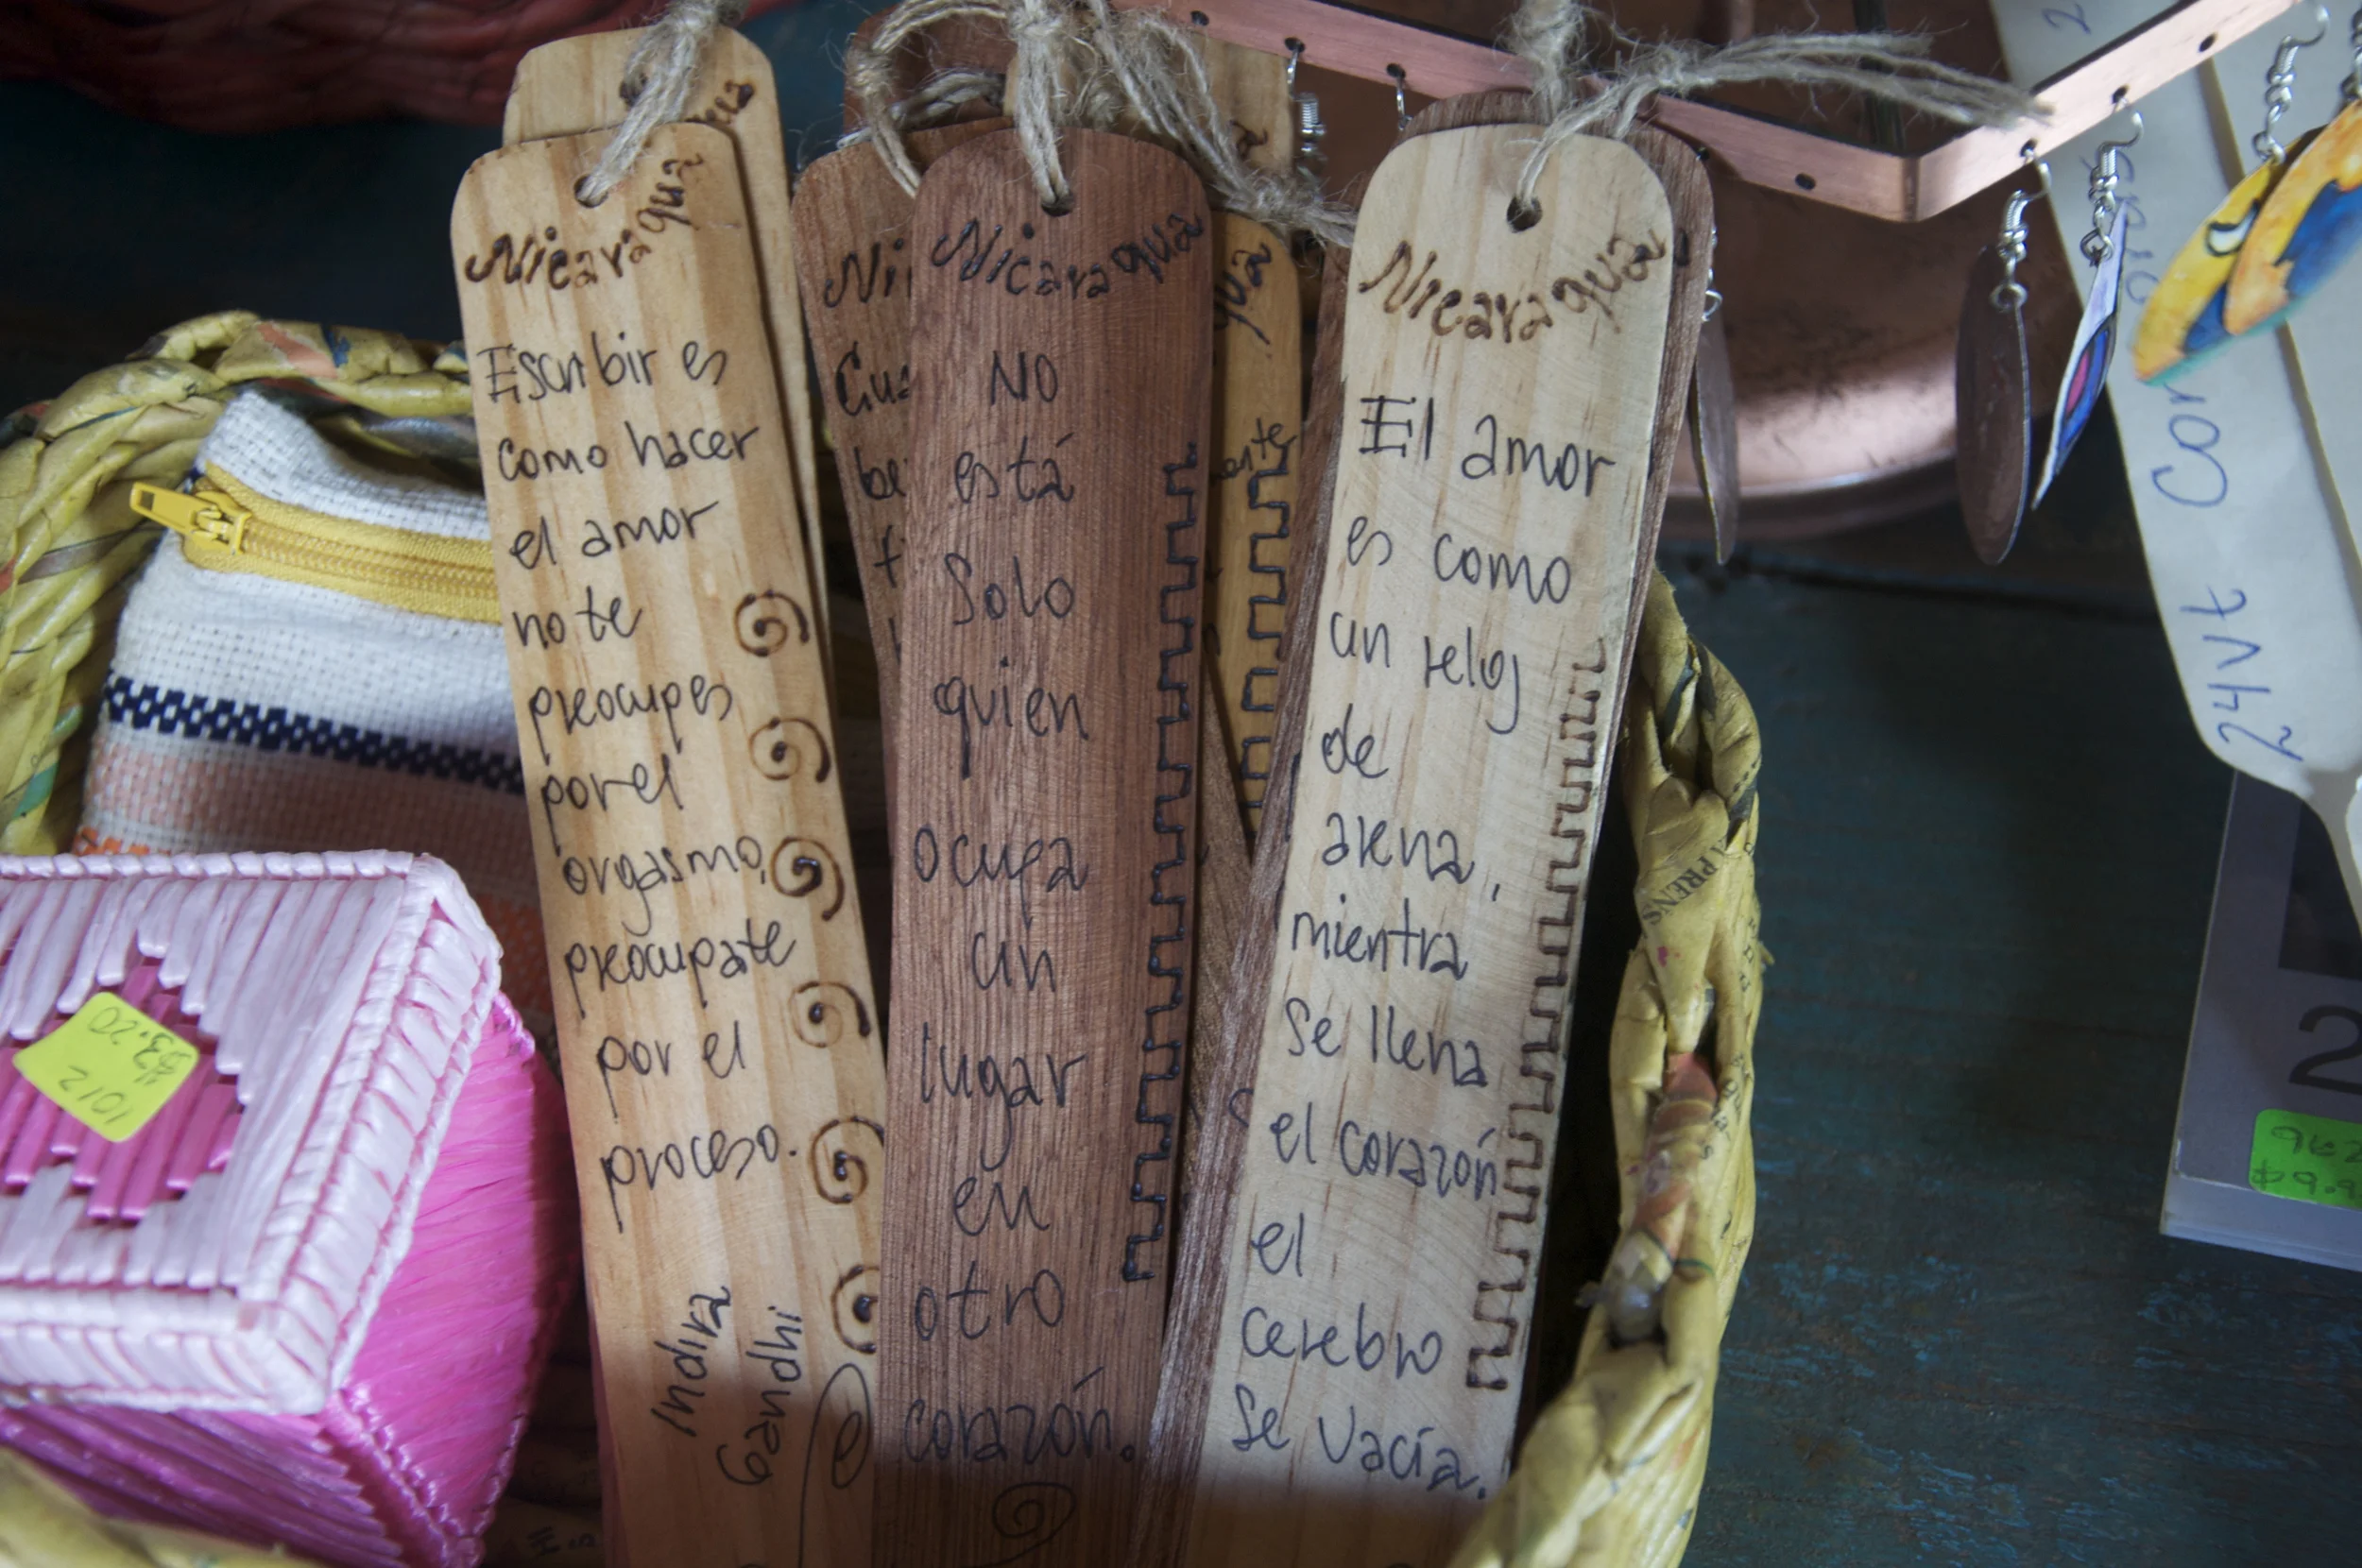 Nicaragua
Escribir es
como hacer
el amor
no te
preocupes
por el
orgasmo,
preocupate
por el
proceso.
Indira
Gandhi
Nicaragua
No
está
Solo
quien
ocupa
un
lugar
en
otro
corazón.
Nicaragua
El amor
es como
un reloj
de
arena,
mientra
se llena
el corazón
el
cerebro
se vacía.
1012
$3.20